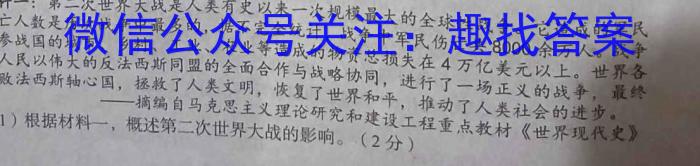 料一：第二次世界大战是人类有史以来一次规模最大的全球
亡人数是
参战国的 等造成的物资总损失在4万亿美元以上。世界各
人民以伟大的反法西斯同盟的全面合作与战略协同，进行了一场正义的战争，最终
败法西斯轴心国，拯救了人类文明，恢复了世界和平，推动了人类社会的进步。
——摘编自马克思主义理论研究和建设工程重点教材《世界现代史》
1）根据材料一，概述第二次世界大战的影响。（2分）
微信公众号关注：趣找答案